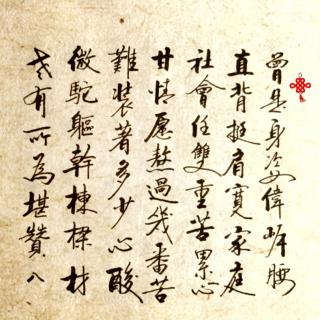 曾是身姿偉岸腰
直背挺肩寬家庭
社會任雙重苦累心
甘情愿熬過幾番苦
難裝著多少心酸
微駝軀幹棟樑材
老有所為堪贊八